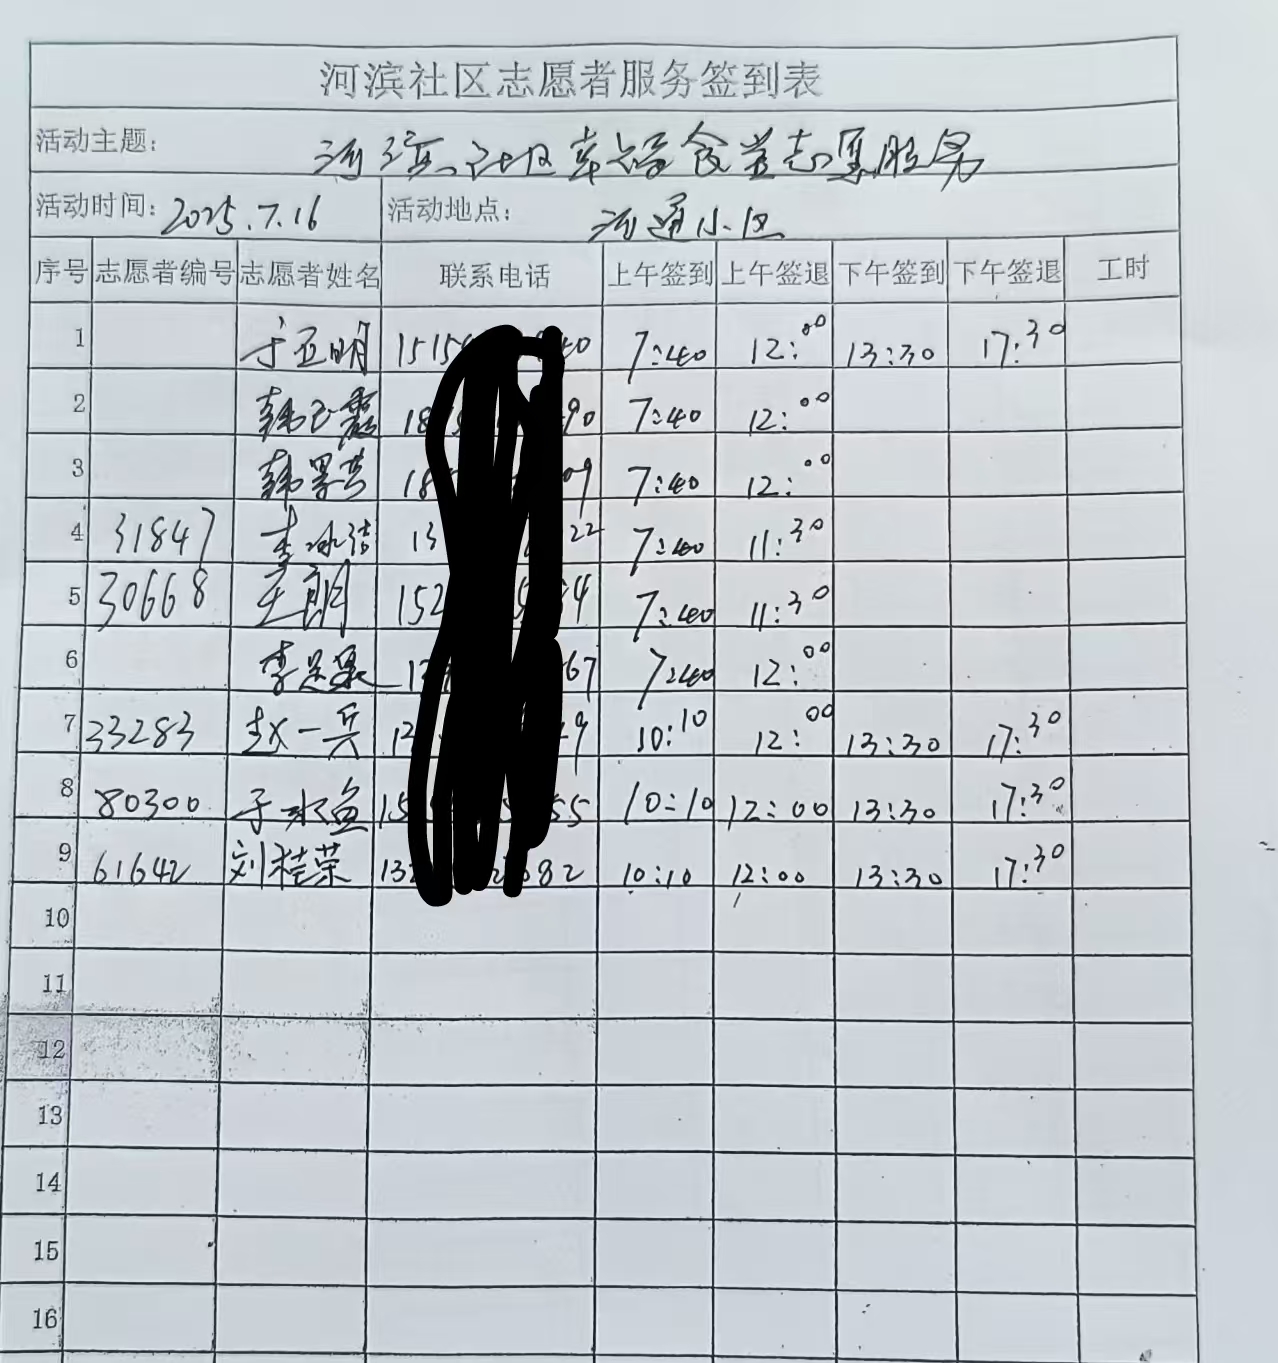 河滨社区志愿者服务签到表
活动主题: 河滨社区幸福食堂志愿服务
活动时间: 2025.7.16 活动地点: 河通小区
序号 志愿者编号 志愿者姓名 联系电话 上午签到 上午签退 下午签到 下午签退 工时
1 于亚明 7:40 12:00 13:30 17:30
2 韩玉霞 7:40 12:00
3 韩翠芸 7:40 12:00
4 31847 李冰洁 7:40 11:30
5 30668 王朗 7:40 11:30
6 李 7:40 12:00
7 33283 赵一兵 10:10 12:00 13:30 17:30
8 80300 于冰鱼 10:10 12:00 13:30 17:30
9 61642 刘桂荣 10:10 12:00 13:30 17:30
10
11
12
13
14
15
16